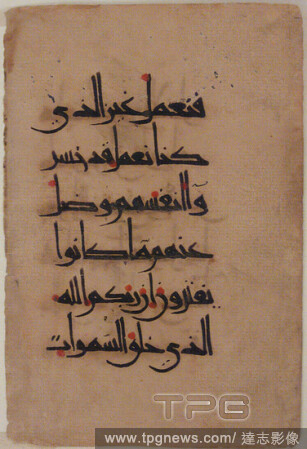 فنعمل غير الذي
كنا نعمل قد خسر
وا انفسهم وضل
عنهم ما كانوا
يفترون ان ربكم الله
الذي خلق السموات
TPG
www.tpgnews.com/ 達志影像